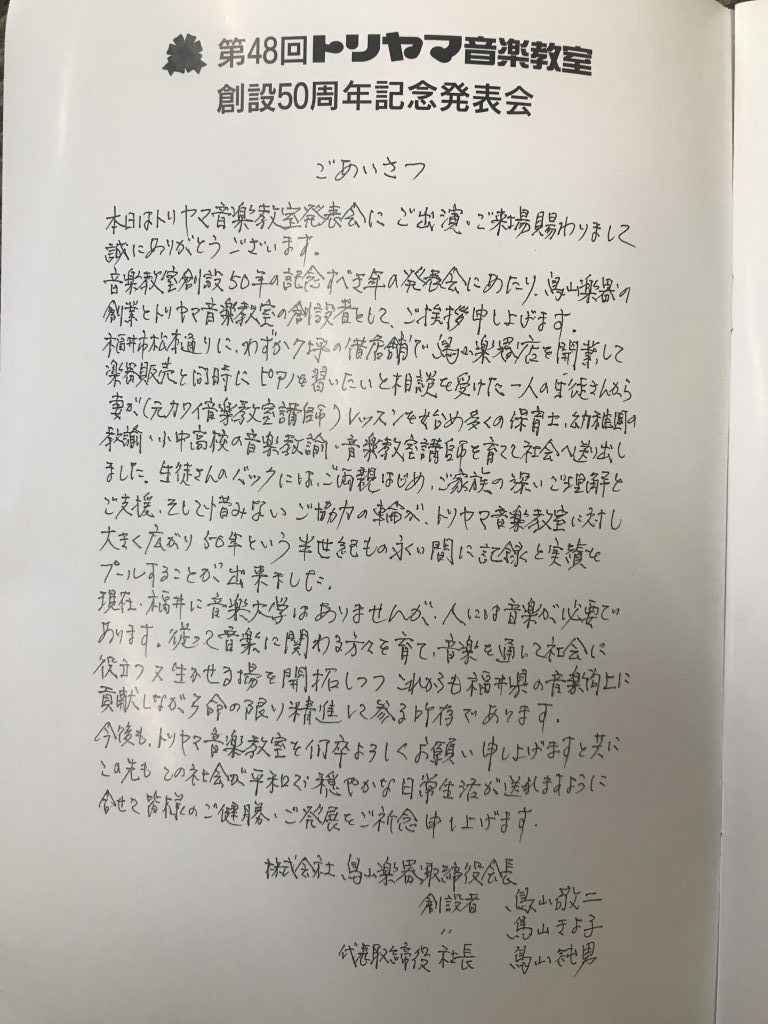 第48回トリヤマ音楽教室
創設50周年記念発表会
ごあいさつ
本日はトリヤマ音楽教室発表会に ご出演・ご来場賜わりまして
誠にありがとうございます。
音楽教室創設50年の記念すべき年の発表会にあたり、鳥山楽器の
創業とトリヤマ音楽教室の創設者として、ご挨拶申し上げます。
福井市松本通りに、わずか7坪の借店舗で鳥山楽器店を開業して
楽器販売と同時に ピアノを習いたいと相談を受けた一人の生徒さんから
妻が(元カワイ音楽教室講師)レッスンを始め多くの保育士、幼稚園の
教諭・小中高校の音楽教諭・音楽教室講師を育てて社会へ送り出し
ました。生徒さんのバックには、ご両親はじめ、ご家族の深いご理解と
ご支援、そして惜みない ご協力の輪が、トリヤマ音楽教室に対し
大きく広がり 50年という 半世紀もの永い間に記録と実績を
プールすることが出来ました。
現在、福井に音楽大学はありませんが、人には音楽が必要で
あります。従って音楽に関わる方々を育て、音楽を通して社会に
役立つ又生かせる場を開拓しつつ これからも福井県の音楽向上に
貢献しながら命の限り精進して参る所存であります。
今後も、トリヤマ音楽教室を何卒よろしくお願い申し上げますと共に
この先も この社会が平和で穏やかな日常生活が送れますように
合せて皆様のご健勝・ご発展をご祈念申し上げます。
株式会社 鳥山楽器取締役会長
創設者 鳥山敬二
〃 鳥山きよ子
代表取締役 社長 鳥山純男